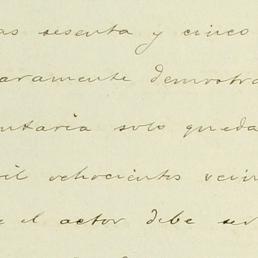 as sesenta y cinco
aramente demostra
ntaria solo queda
il ochocientos vein
e el actor debe ser